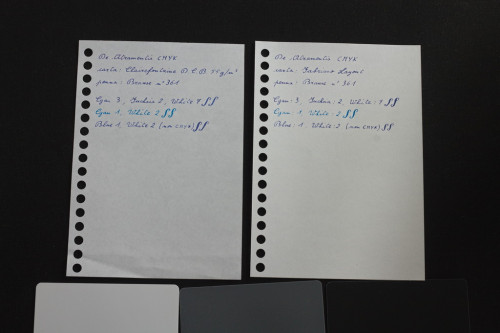 De Atramentis CMYK
carta: Clairefontaine D.C.B. g/m²
penna: Brause n° 361
Cyan 3, 2, White 9 ʃʃ
Cyan 1, White 2 ʃʃ
Blue 1, White 2 (non CMYK) ʃʃ
De Atramentis CMYK
carta: Fabriano
penna: Brause n° 361
Cyan: 3, 2, White: 9 ʃʃ
Cyan: 1, White: 2 ʃʃ
Blue: 1, White: 2 (non CMYK) ʃʃ